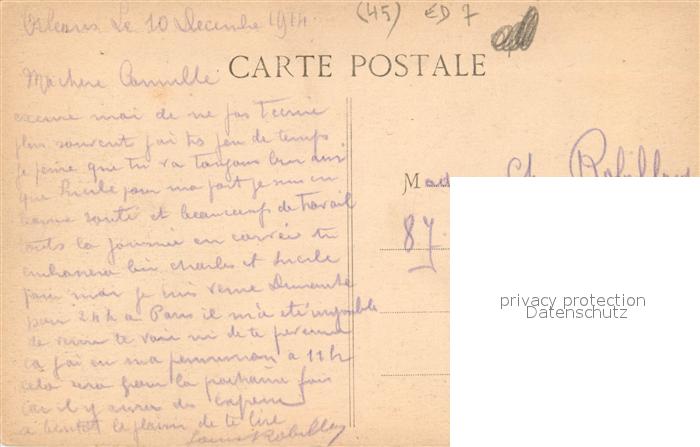 Orleans Le 10 Decembre 1914
(45) ED 7
CARTE POSTALE
Ma chere Camille
excuse moi de ne pas t'ecrire
plus souvent j'ai tres peu de temps
je pense que tu va toujours bien ainsi
que Lucile pour ma part je suis en
bonne santé et beaucoup de travail
touts la journée en corvée tu
embrassera bien Charles et Lucile
pour moi je suis venu Dimanche
pour 24h a Paris il m'a eté impossible
de venir te voir ni de te prevenir
car j'ai eu ma permission a 11h
cela sera pour la prochaine fois
car il y aura des
a bientot le plaisir de te lire
Louis Robillard
Mad Ch. Robillard
87
privacy protection
Datenschutz